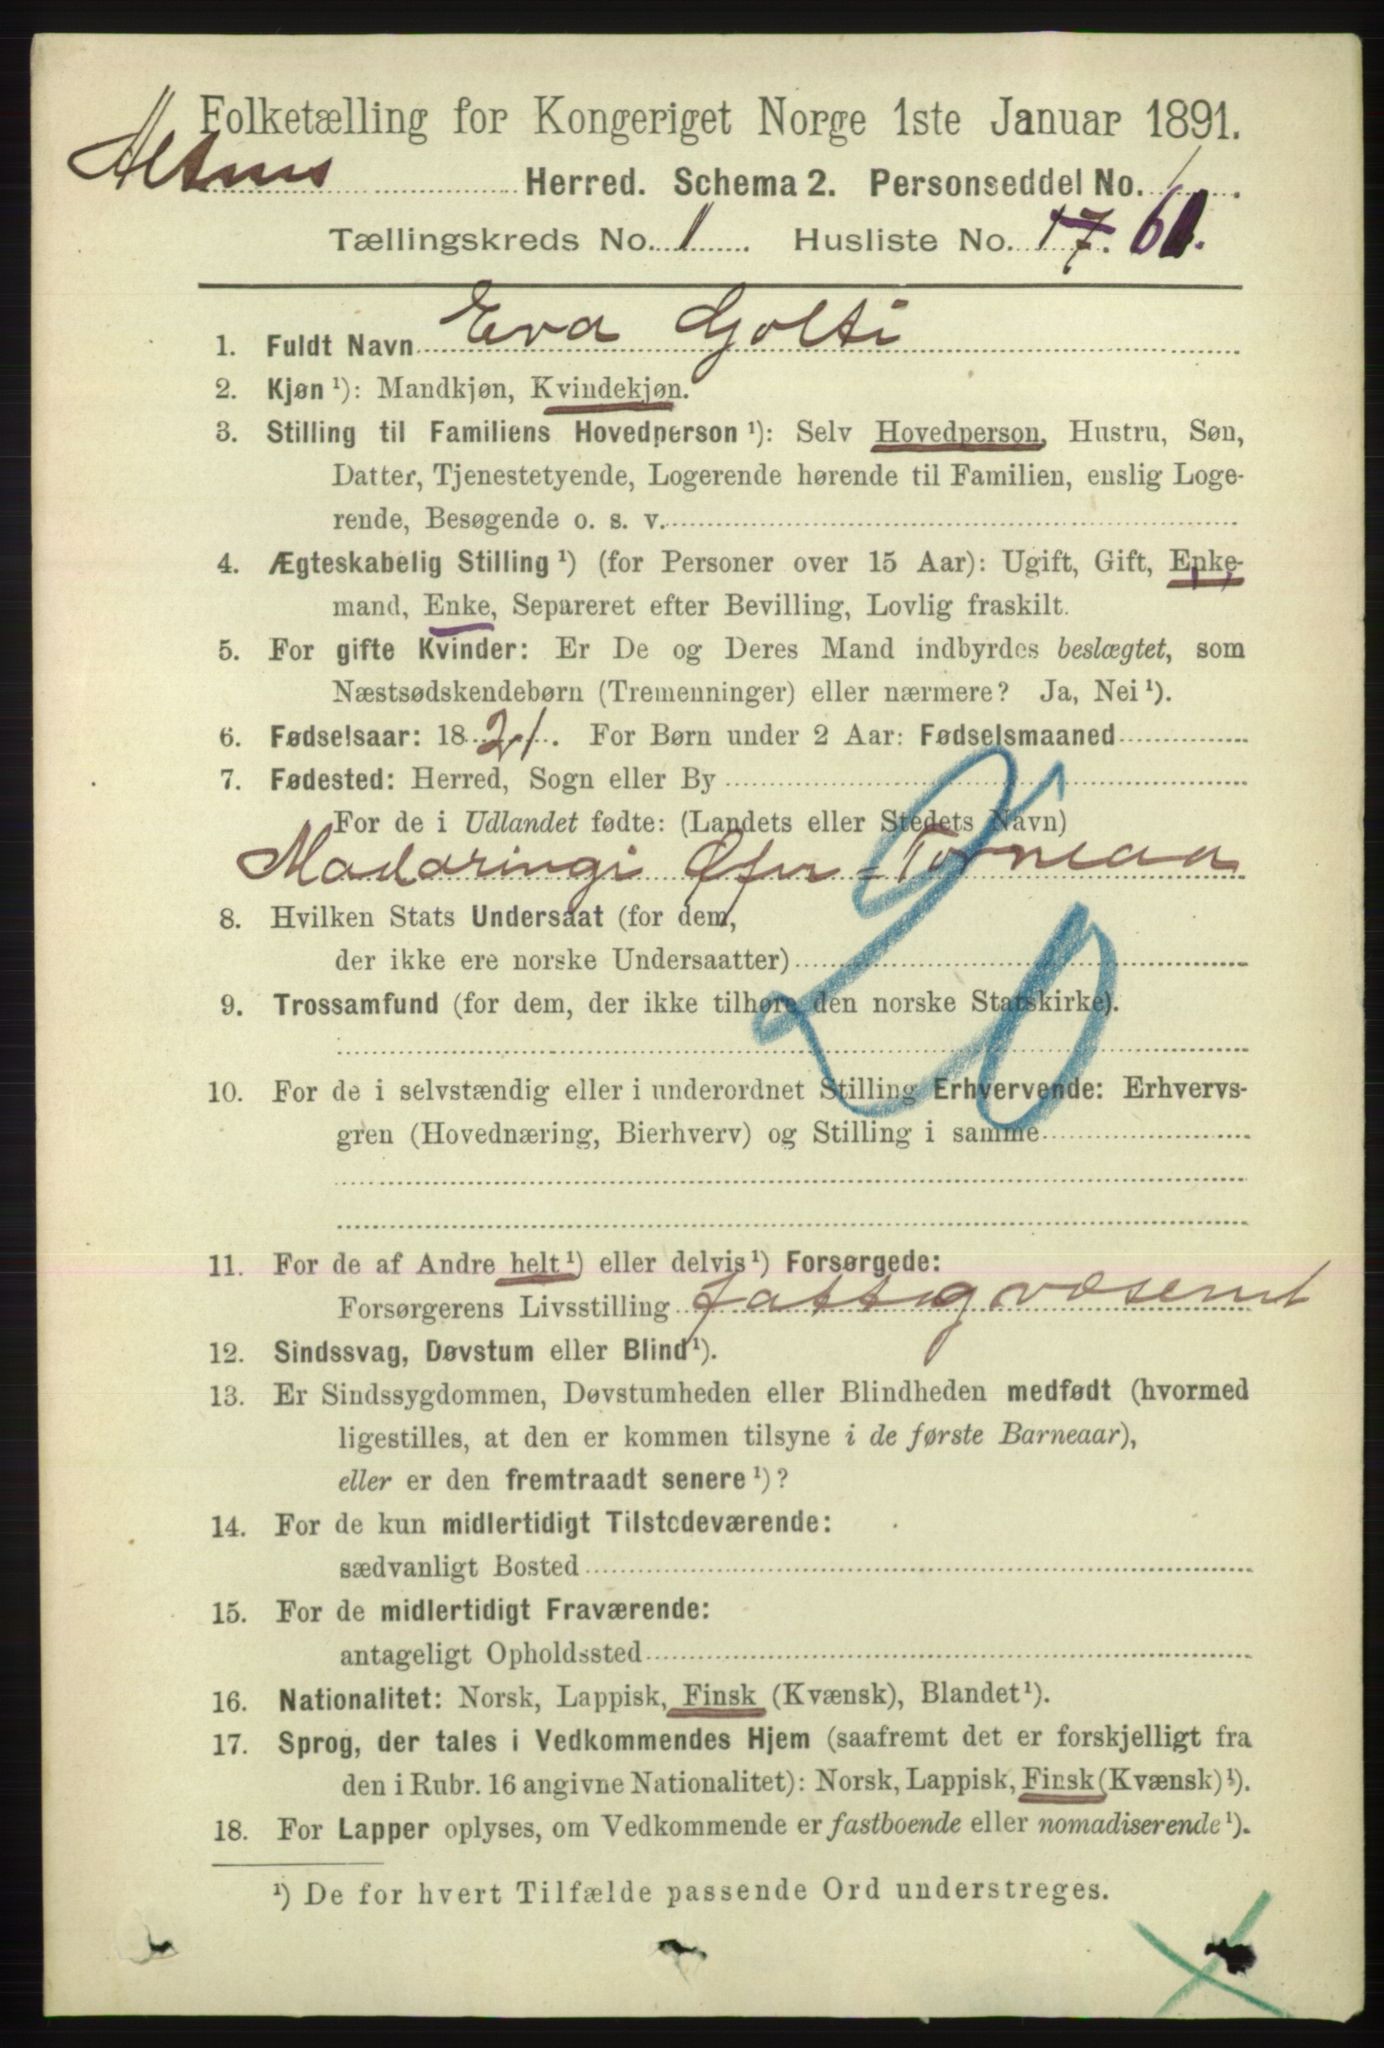 Folketælling for Kongeriget Norge 1ste Januar 1891.
Altens Herred. Schema 2. Personseddel No. 1.
Tællingskreds No. 1. Husliste No. 17. 61.
1. Fuldt Navn Eva Golti
2. Kjøn ¹): Mandkjøn, Kvindekjøn.
3. Stilling til Familiens Hovedperson ¹): Selv Hovedperson, Hustru, Søn,
Datter, Tjenestetyende, Logerende hørende til Familien, enslig Loge-
rende, Besøgende o. s. v.
4. Ægteskabelig Stilling ¹) (for Personer over 15 Aar): Ugift, Gift, Enke-
mand, Enke, Separeret efter Bevilling, Lovlig fraskilt.
5. For gifte Kvinder: Er De og Deres Mand indbyrdes beslægtet, som
Næstsødskendebørn (Tremenninger) eller nærmere? Ja, Nei ¹).
6. Fødselsaar: 1821. For Børn under 2 Aar: Fødselsmaaned
7. Fødested: Herred, Sogn eller By
For de i Udlandet fødte: (Landets eller Stedets Navn)
Madaringi Øfer=Torneaa
20
8. Hvilken Stats Undersaat (for dem,
der ikke ere norske Undersaatter)
9. Trossamfund (for dem, der ikke tilhøre den norske Statskirke).
10. For de i selvstændig eller i underordnet Stilling Erhvervende: Erhvervs-
gren (Hovednæring, Bierhverv) og Stilling i samme
11. For de af Andre helt ¹) eller delvis ¹) Forsørgede:
Forsørgerens Livsstilling fattigvæsenet
12. Sindssvag, Døvstum eller Blind ¹).
13. Er Sindssygdommen, Døvstumheden eller Blindheden medfødt (hvormed
ligestilles, at den er kommen tilsyne i de første Barneaar),
eller er den fremtraadt senere ¹)?
14. For de kun midlertidigt Tilstedeværende:
sædvanligt Bosted
15. For de midlertidigt Fraværende:
antageligt Opholdssted
16. Nationalitet: Norsk, Lappisk, Finsk (Kvænsk), Blandet ¹).
17. Sprog, der tales i Vedkommendes Hjem (saafremt det er forskjelligt fra
den i Rubr. 16 angivne Nationalitet): Norsk, Lappisk, Finsk (Kvænsk) ¹).
18. For Lapper oplyses, om Vedkommende er fastboende eller nomadiserende ¹).
¹) De for hvert Tilfælde passende Ord understreges.